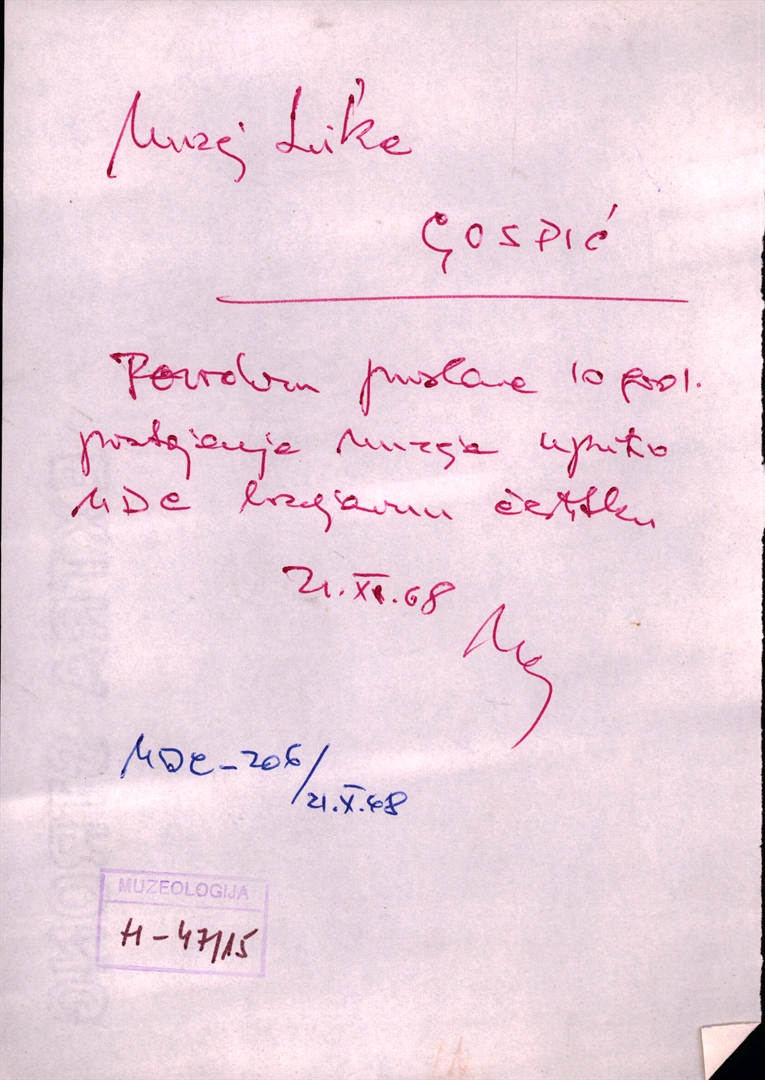 Muzej Like
GOSPIĆ
Povodom proslave 10 god.
postojanja Muzeja uputio
MDC brzojavnu čestitku
21.XI.68
MDC-206/21.X.68
MUZEOLOGIJA
H-47/15